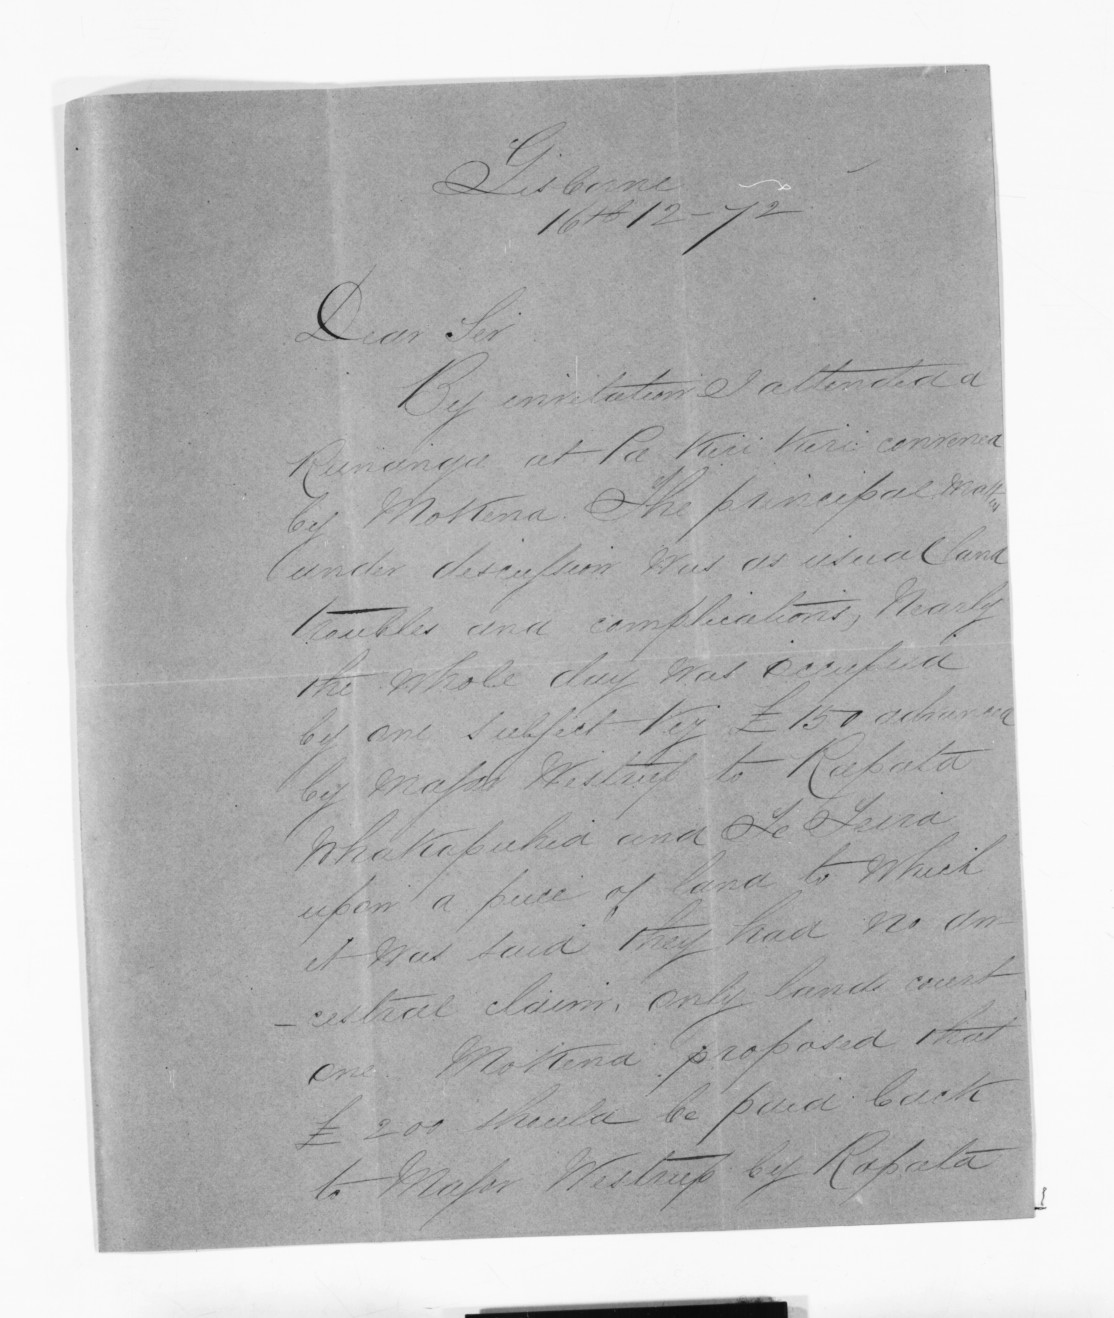 Gisborne
16th 12-72
Dear Sir
By invitation I attended a
Runanga at Pa Kiri Kiri convened
by Mokena. The principal matters
under discussion was as usual land
troubles and complications, Nearly
the whole day was occupied
by one subject viz £150 advanced
by Major Westrup to Rapata
Whakapuhia and Te Teira
upon a piece of land to which
it was said they had no an-
-cestral claim, only lands court
one. Mokena proposed that
£200 should be paid back
to Major Westrup by Rapata